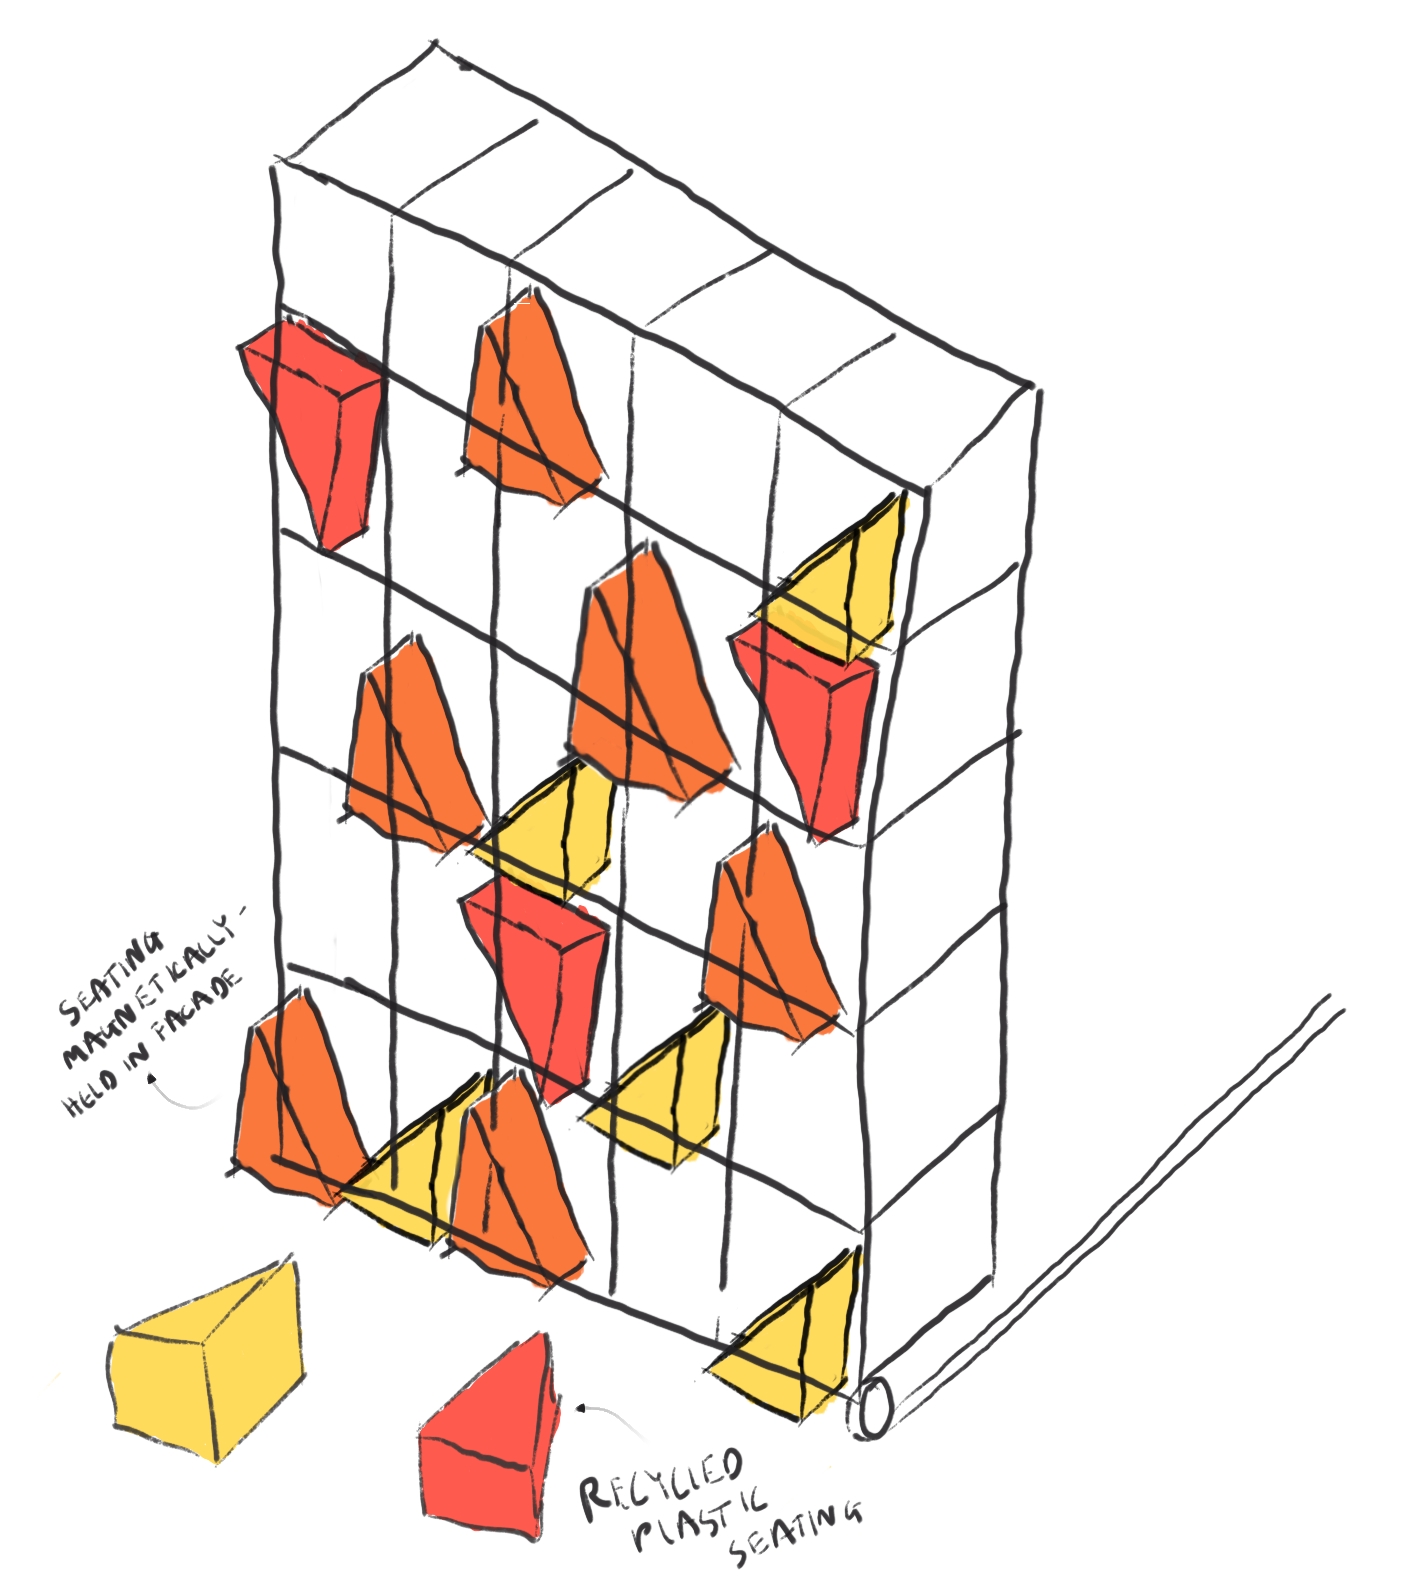 SEATING
MAGNETICALLY-
HELD IN FACADE
RECYCLED
PLASTIC
SEATING